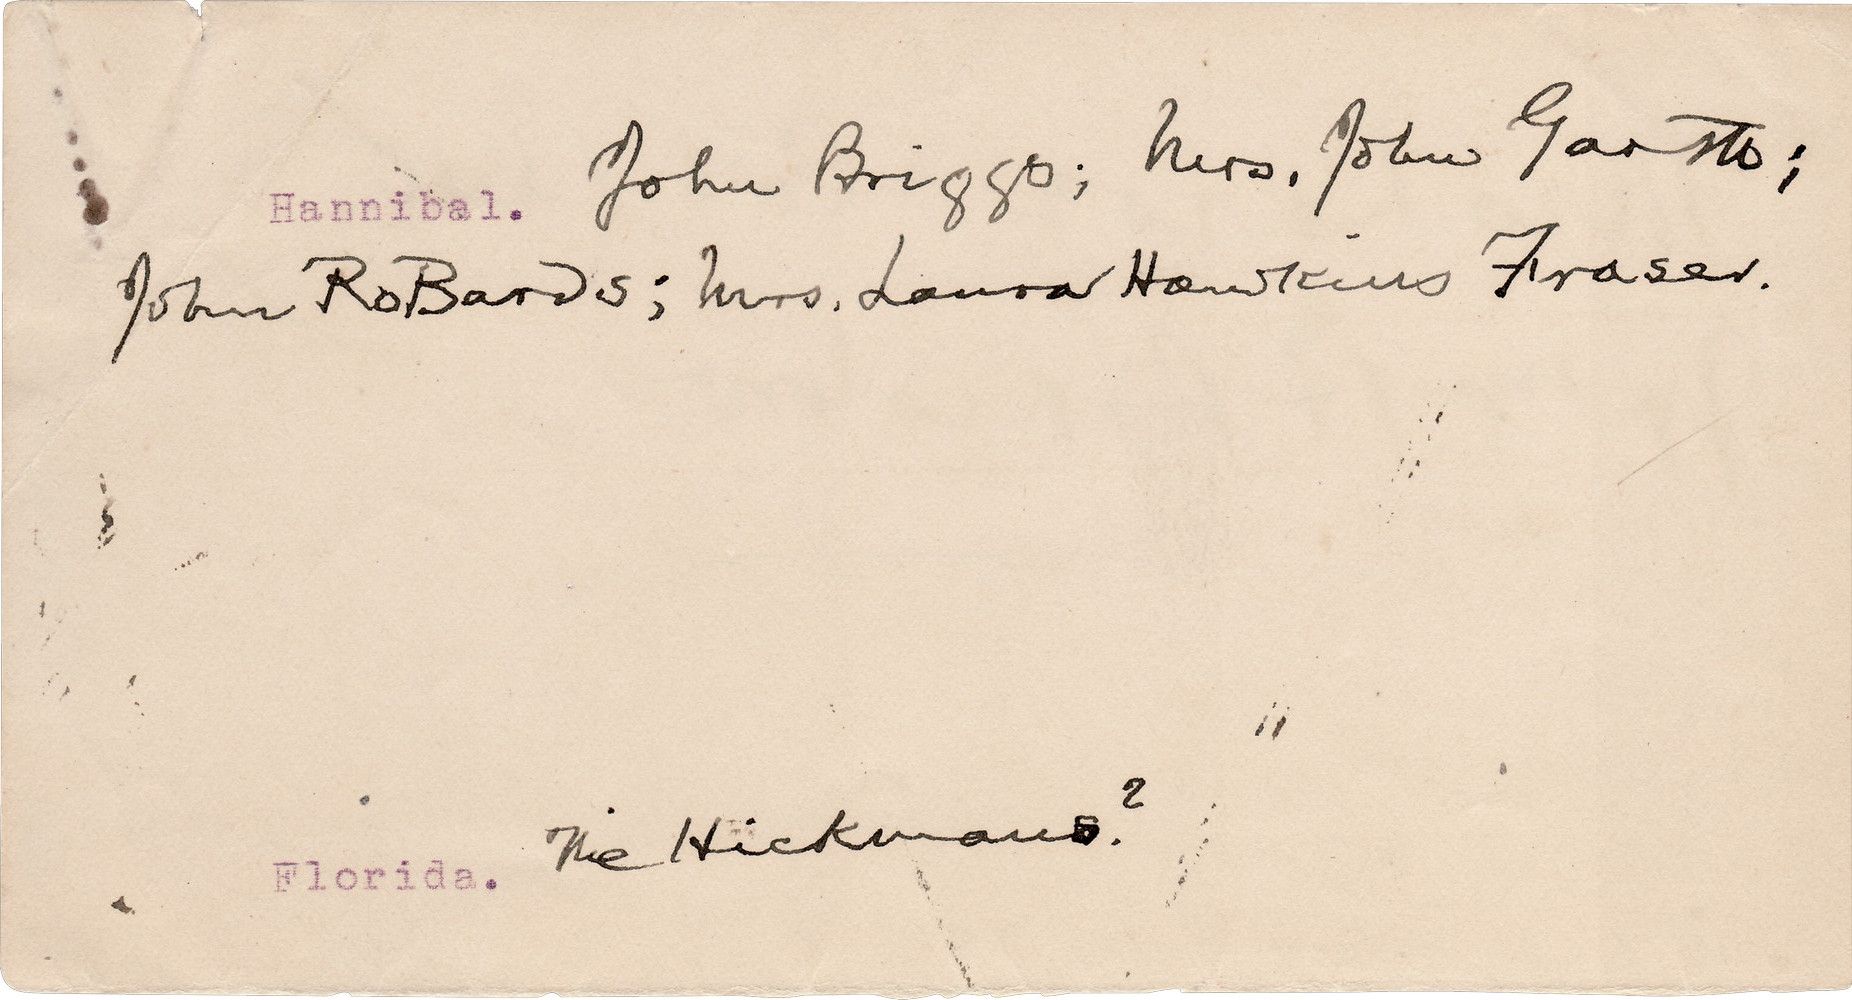 Hannibal. John Briggs; Mrs. John Garth;
John RoBards; Mrs. Laura Hawkins Frazer.
Florida. The Hickmans.?